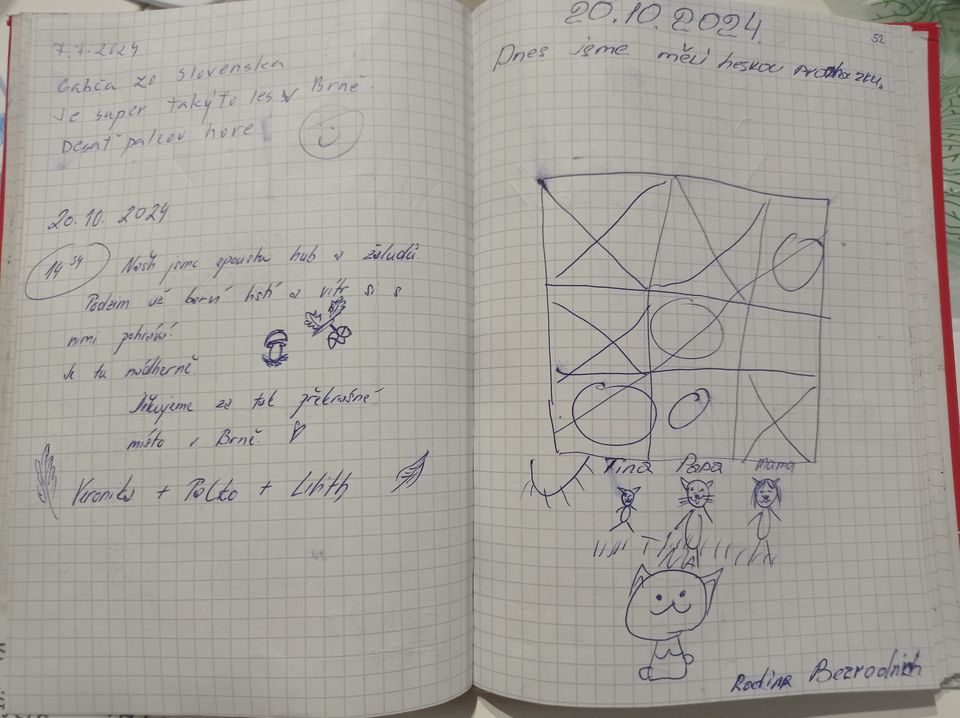 7.7.2024
Gabča zo Slovenska
Je super takýto les v Brně.
Desať palcov hore
20.10.2024
14 54 Našli jsme spoustu hub a žaludů.
Podzim už barví listí a vítr si s
nimi pohrává.
Je tu nádherně.
Děkujeme za tak překrásné
místo v Brně.
Veronika + Palko + Lilith
52
20.10.2024
Dnes jsme měli heskou
Tina Papa Mama
Rodina Bezrodnich